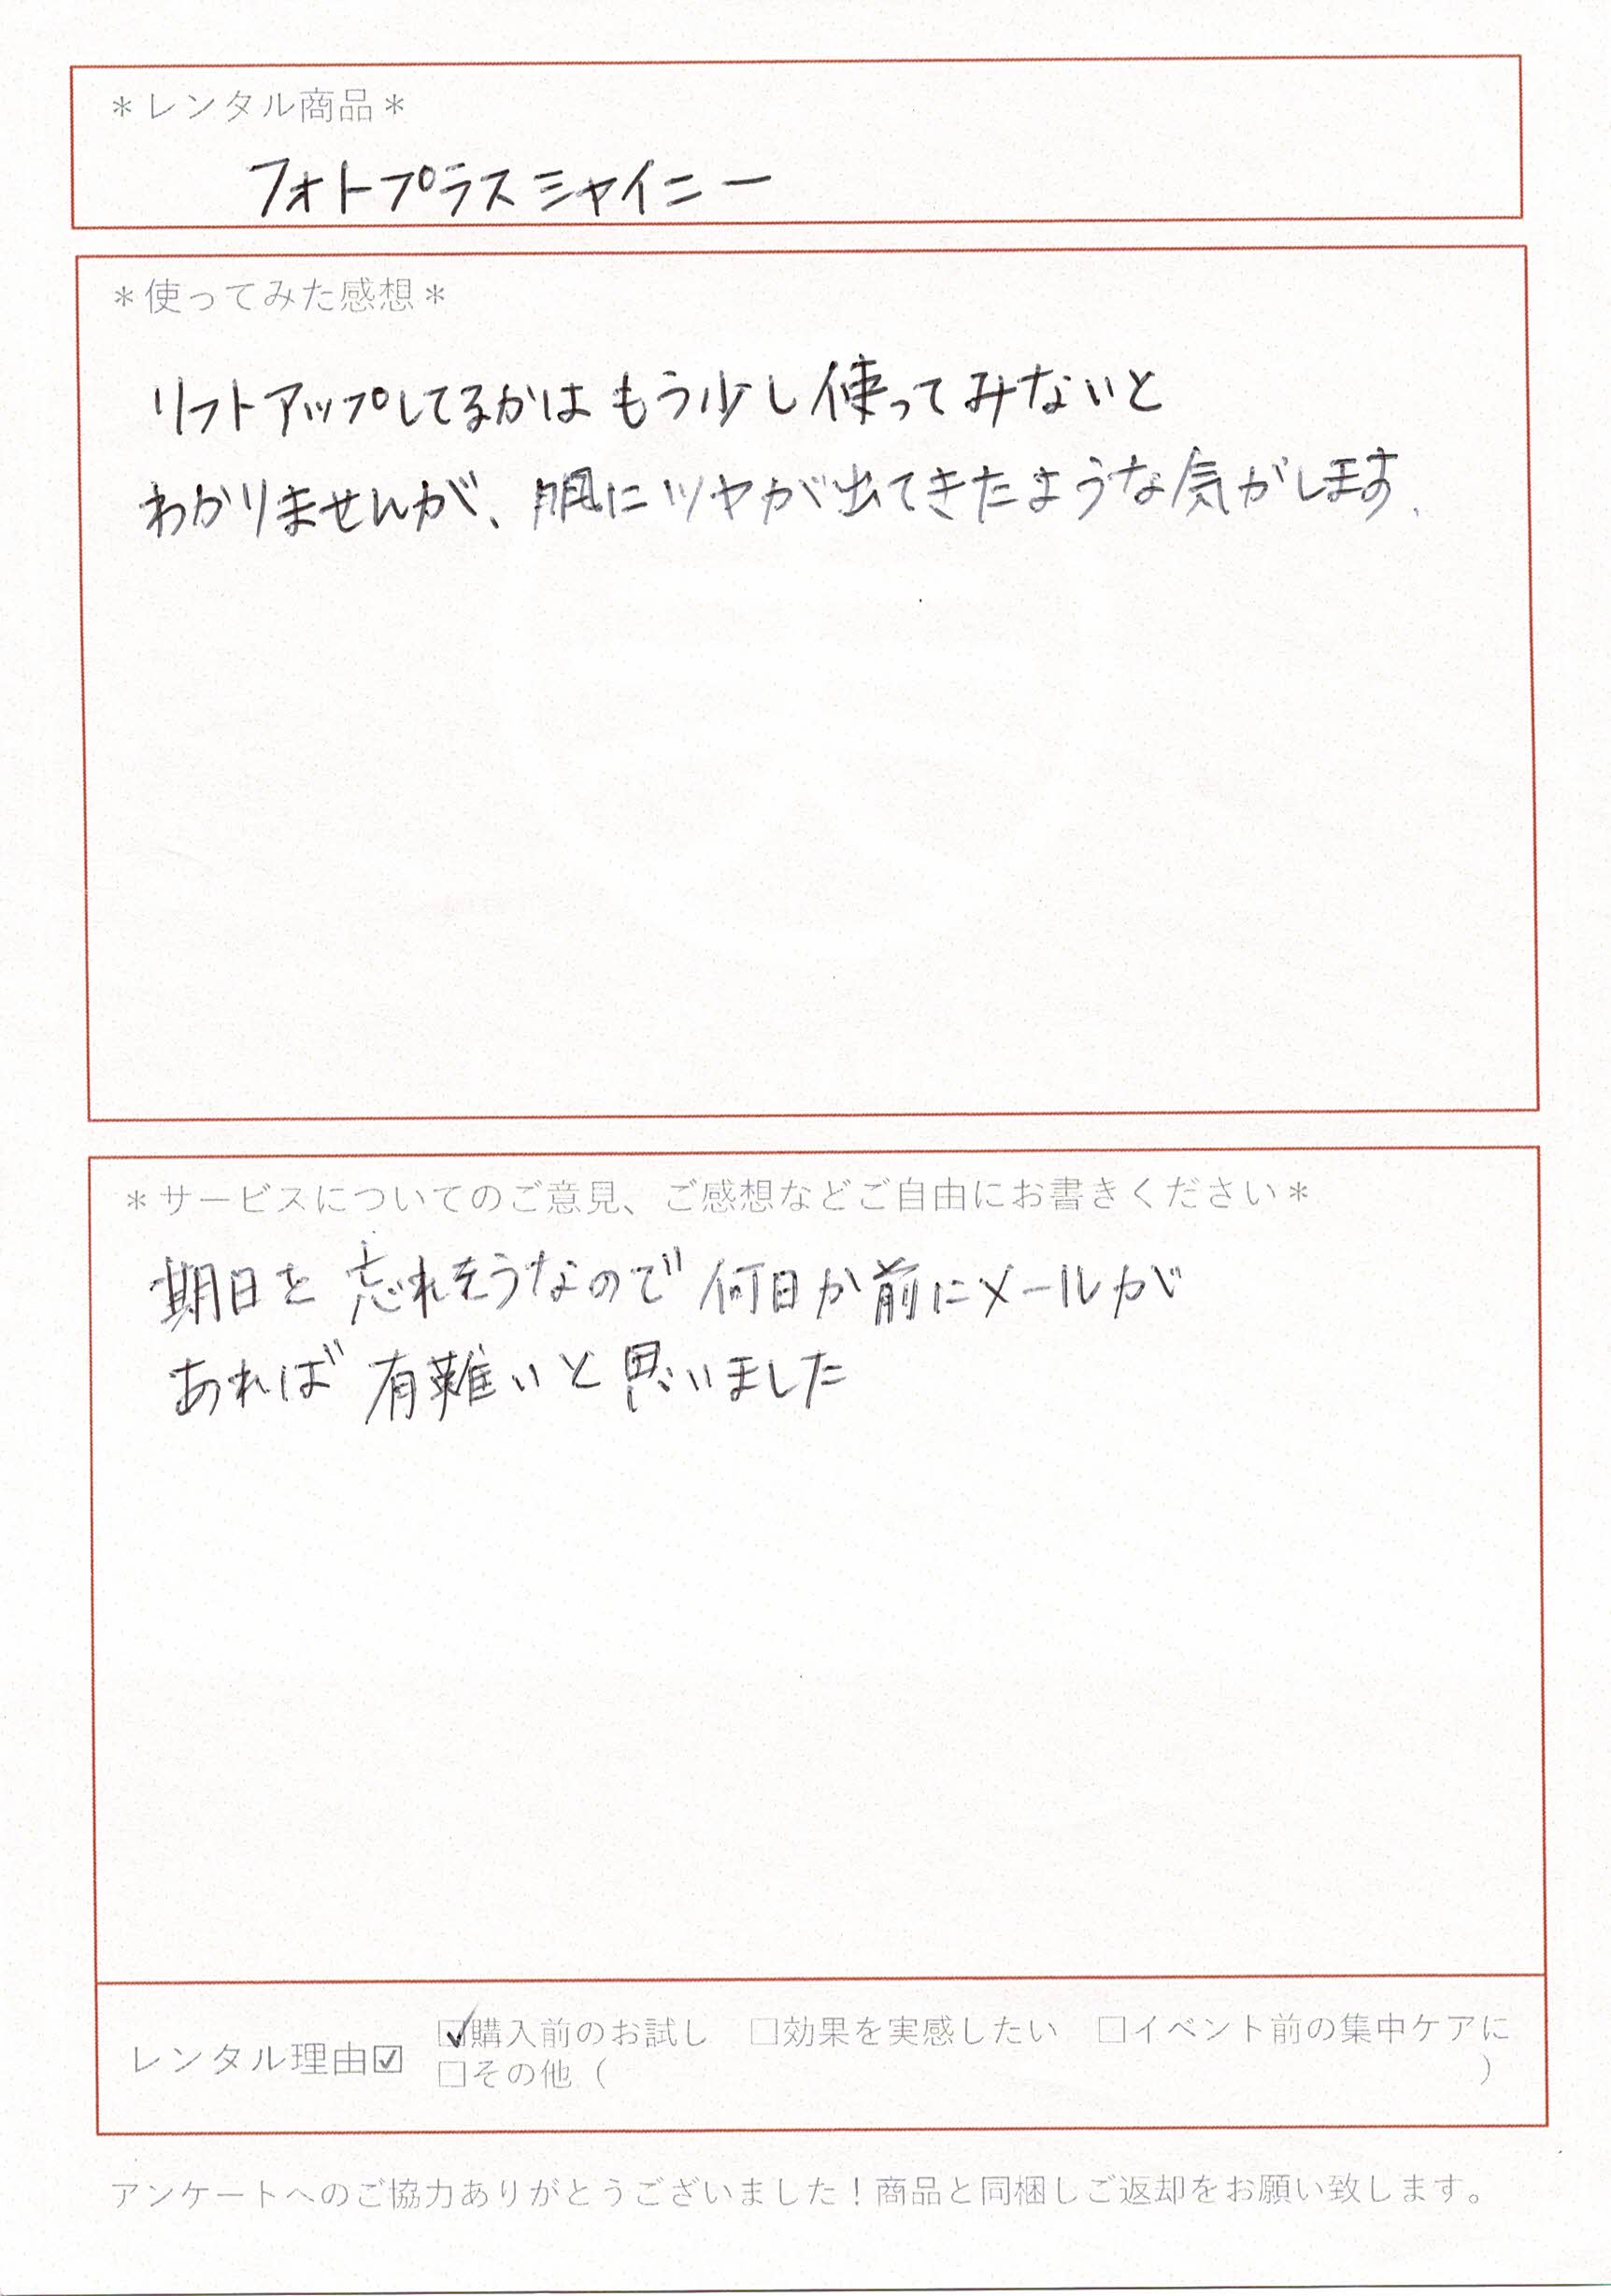 ＊レンタル商品＊
フォトプラスシャイニー
＊使ってみた感想＊
リフトアップしてるかはもう少し使ってみないと
わかりませんが、肌にツヤが出てきたような気がします.
＊サービスについてのご意見、ご感想などご自由にお書きください＊
期日を忘れそうなので何日か前にメールが
あれば有難いと思いました
レンタル理由☑ ☑購入前のお試し □効果を実感したい □イベント前の集中ケアに
□その他（ ）
アンケートへのご協力ありがとうございました！商品と同梱しご返却をお願い致します。